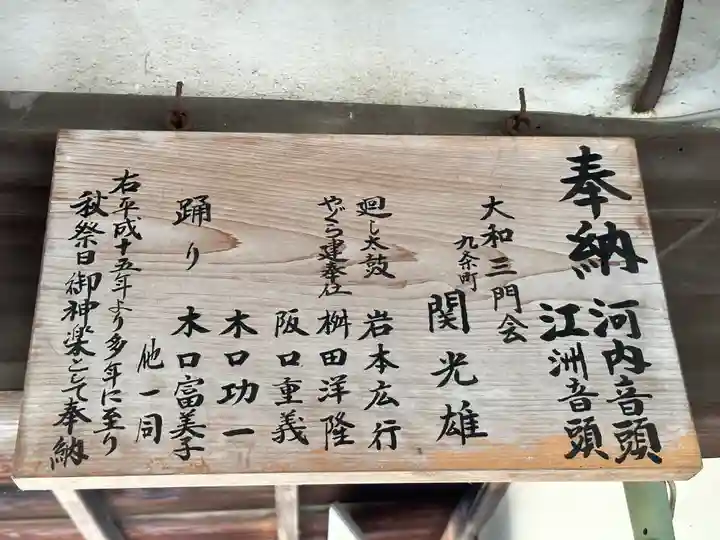 奉納
河内音頭
江洲音頭
大和三門会
九条町
関光雄
廻し太鼓
岩本広行
やぐら建奉仕
桝田洋隆
阪口重義
踊り
木口功一
木口富美子
他一同
右平成十五年より多年に至り
秋祭日御神楽として奉納